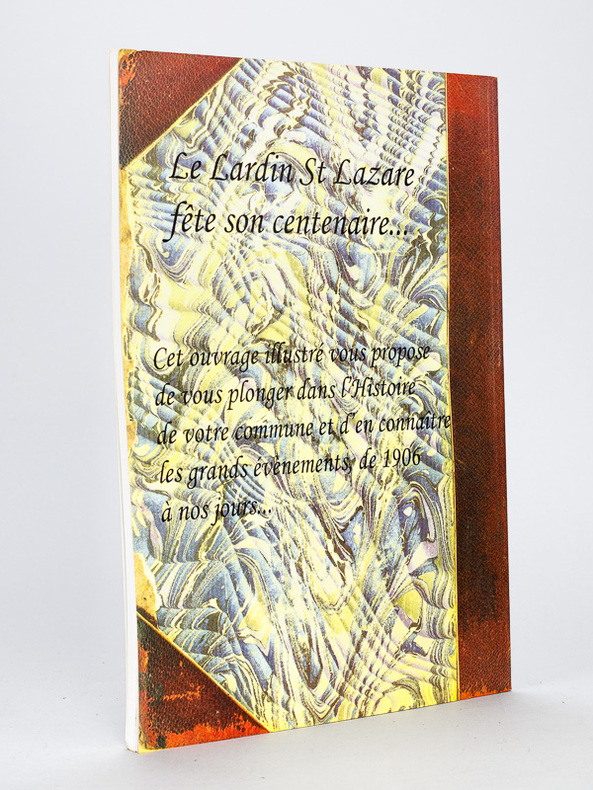 Le Lardin St Lazare
fête son centenaire...
Cet ouvrage illustré vous propose
de vous plonger dans l'Histoire
de votre commune et d'en connaître
les grands évènements, de 1906
à nos jours...